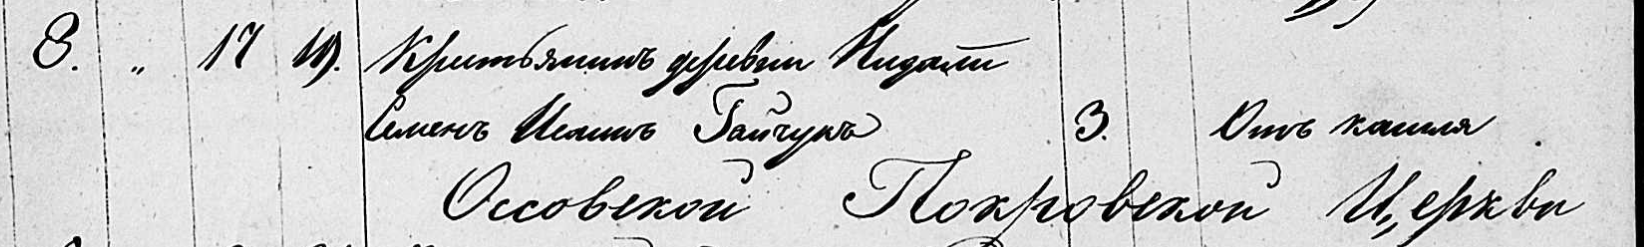 8. „ 17 19. Крестьянинъ деревни Нидали
Семенъ Исаинъ Гайчукъ 3. Отъ кашля
Оссовской Покровской Церкви